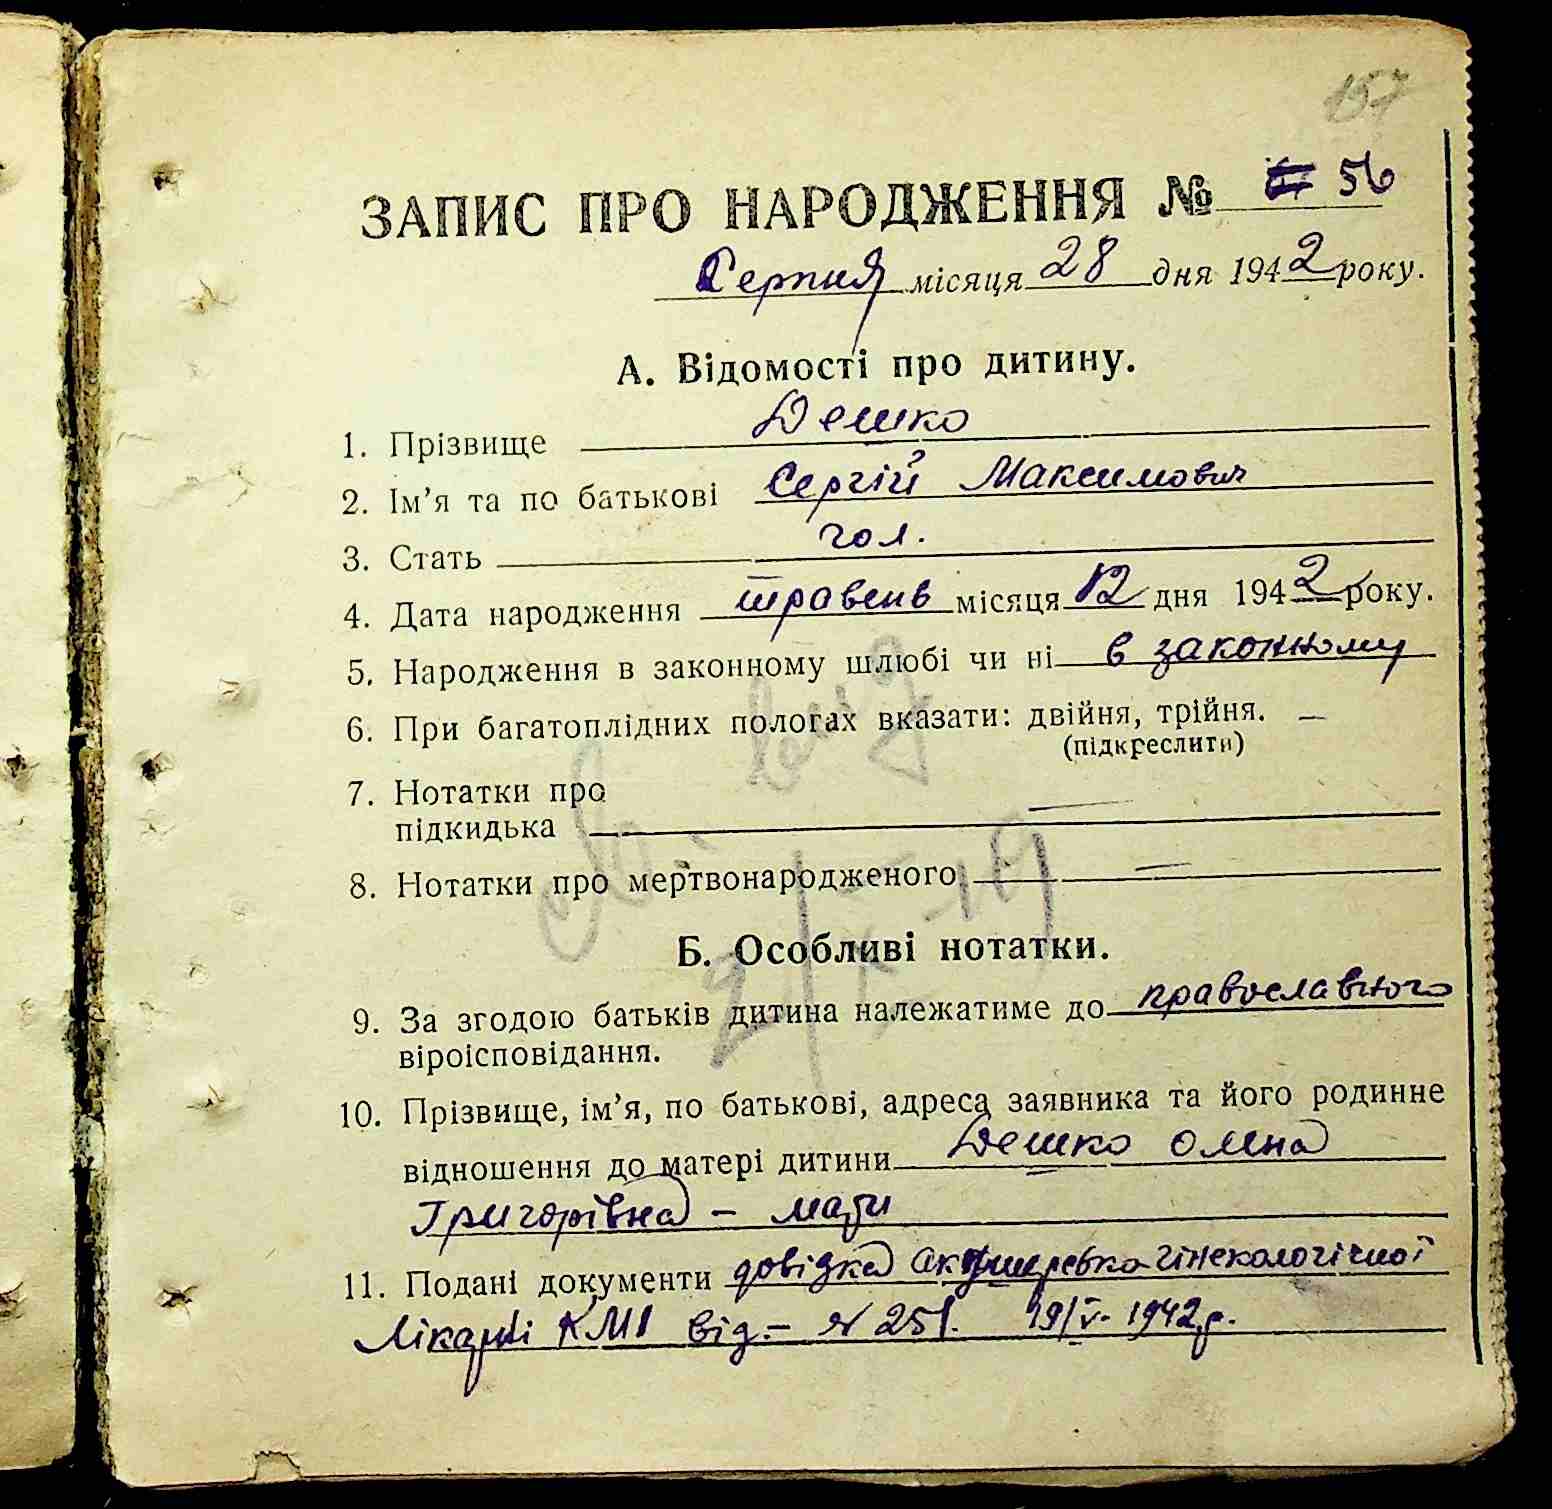 157
ЗАПИС ПРО НАРОДЖЕННЯ № 56
Серпня місяця 28 дня 1942 року.
А. Відомості про дитину.
1. Прізвище Дешко
2. Ім'я та по батькові Сергій Максимович
3. Стать чол.
4. Дата народження травень місяця 12 дня 1942 року.
5. Народження в законному шлюбі чи ні в законному
6. При багатоплідних пологах вказати: двійня, трійня. —
(підкреслити)
7. Нотатки про
підкидька —
8. Нотатки про мертвонародженого —
Б. Особливі нотатки.
9. За згодою батьків дитина належатиме до православного
віроісповідання.
10. Прізвище, ім'я, по батькові, адреса заявника та його родинне
відношення до матері дитини Дешко
Григорівна – мати
11. Подані документи довідка Акушерсько гінекологічної
Лікарні КМІ від.– № 251. 19/V- 1942 р.